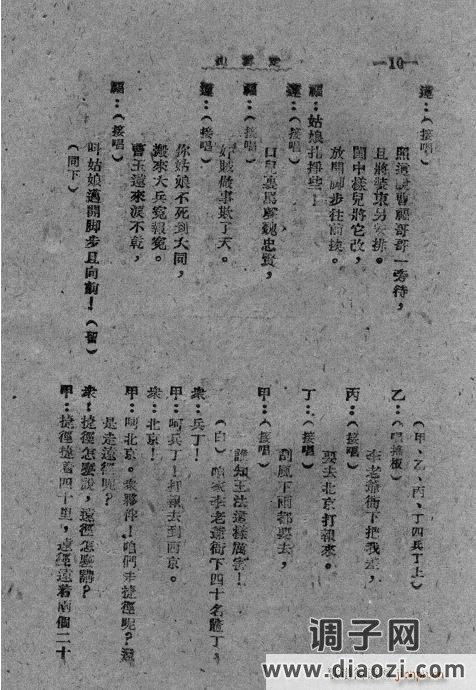 —10—
蓮：（接唱）
照過曹福哥哥一旁待，
且將裝束另安排。
閨中樣兒將它改，
放開脚步往前挨。
福：姑娘扎掙些！
蓮：（接唱）
口兒裏駡聲魏忠賢，
福：（接唱）
奸賊做事欺了天。
蓮：（接唱）
你姑娘不死到大同，
搬來大兵寃報寃。
福：（接唱）
曹玉蓮來淚不乾，
叫姑娘邁開脚步且向前！（留）
（同下）
（甲、乙、丙、丁四兵丁上）
乙：（唱搖板）
李老爺衙下把我差，
丙：（接唱）
要去北京打報來。
丁：（接唱）
刮風下雨都要去，
甲：（接唱）
誰知王法這樣厲害！
（白）咱家李老爺衙下四十名兵丁，
衆：兵丁！
甲：呵兵丁！打報去到西京。
衆：北京！
甲：呵北京。衆夥伴！咱們走捷徑呢？還
是走遠徑呢？
衆：捷徑怎麽說，遠徑怎麽講？
甲：捷徑捷着四十里，遠徑遠着兩個二十
调子网
www.diaozi.com